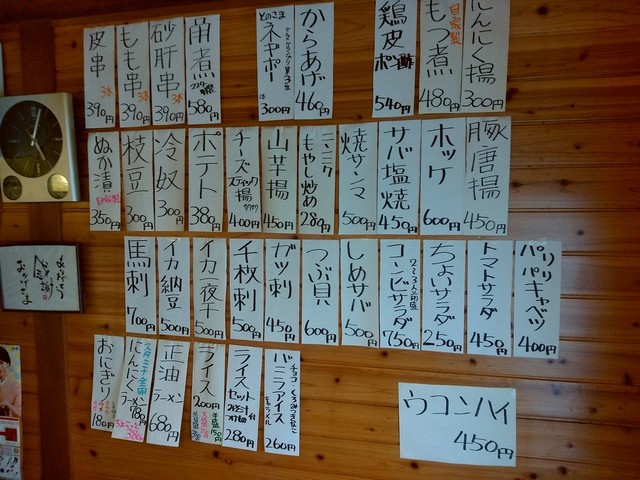 皮串 3本 390円
もも串 3本 390円
砂肝串 3本 390円
角煮 580円
とのさまネギボー 300円
からあげ 460円
鶏皮ポン酢 540円
自家製 もつ煮 480円
にんにく揚 300円
ぬか漬 自家製 350円
枝豆 300円
冷奴 300円
ポテト 380円
チーズスティック揚 400円
山芋揚 450円
ニンニクもやし炒め 280円
焼サンマ 500円
サバ塩焼 450円
ホッケ 600円
豚唐揚 450円
馬刺 700円
イカ納豆 500円
イカ一夜干 500円
千枚刺 500円
ガツ刺 450円
つぶ貝 600円
しめサバ 500円
2〜3人前盛 コンビサラダ 750円
ちょいサラダ 250円
トマトサラダ 450円
パリパリキャベツ 400円
おにぎり 180円
スタミナ全開 にんにくラーメン 780円
ちょこっと 380円
正油ラーメン 680円
ライス 200円
ライスセット 280円
バニラアイス 260円
ウコンハイ
450円
おかげさま